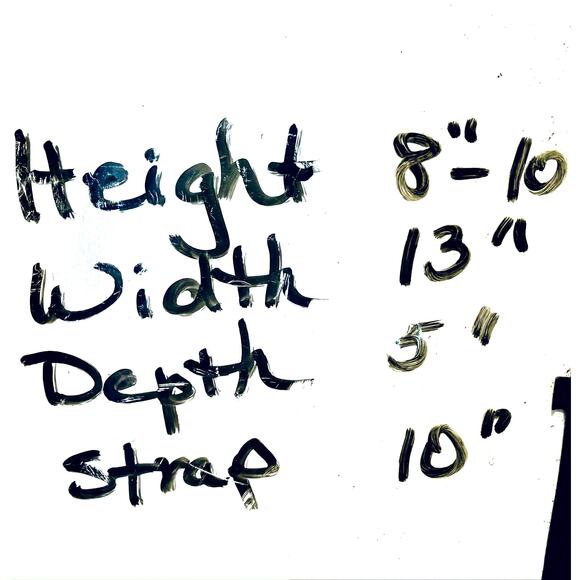 Height 8"-10
Width 13"
Depth 5"
Strap 10"